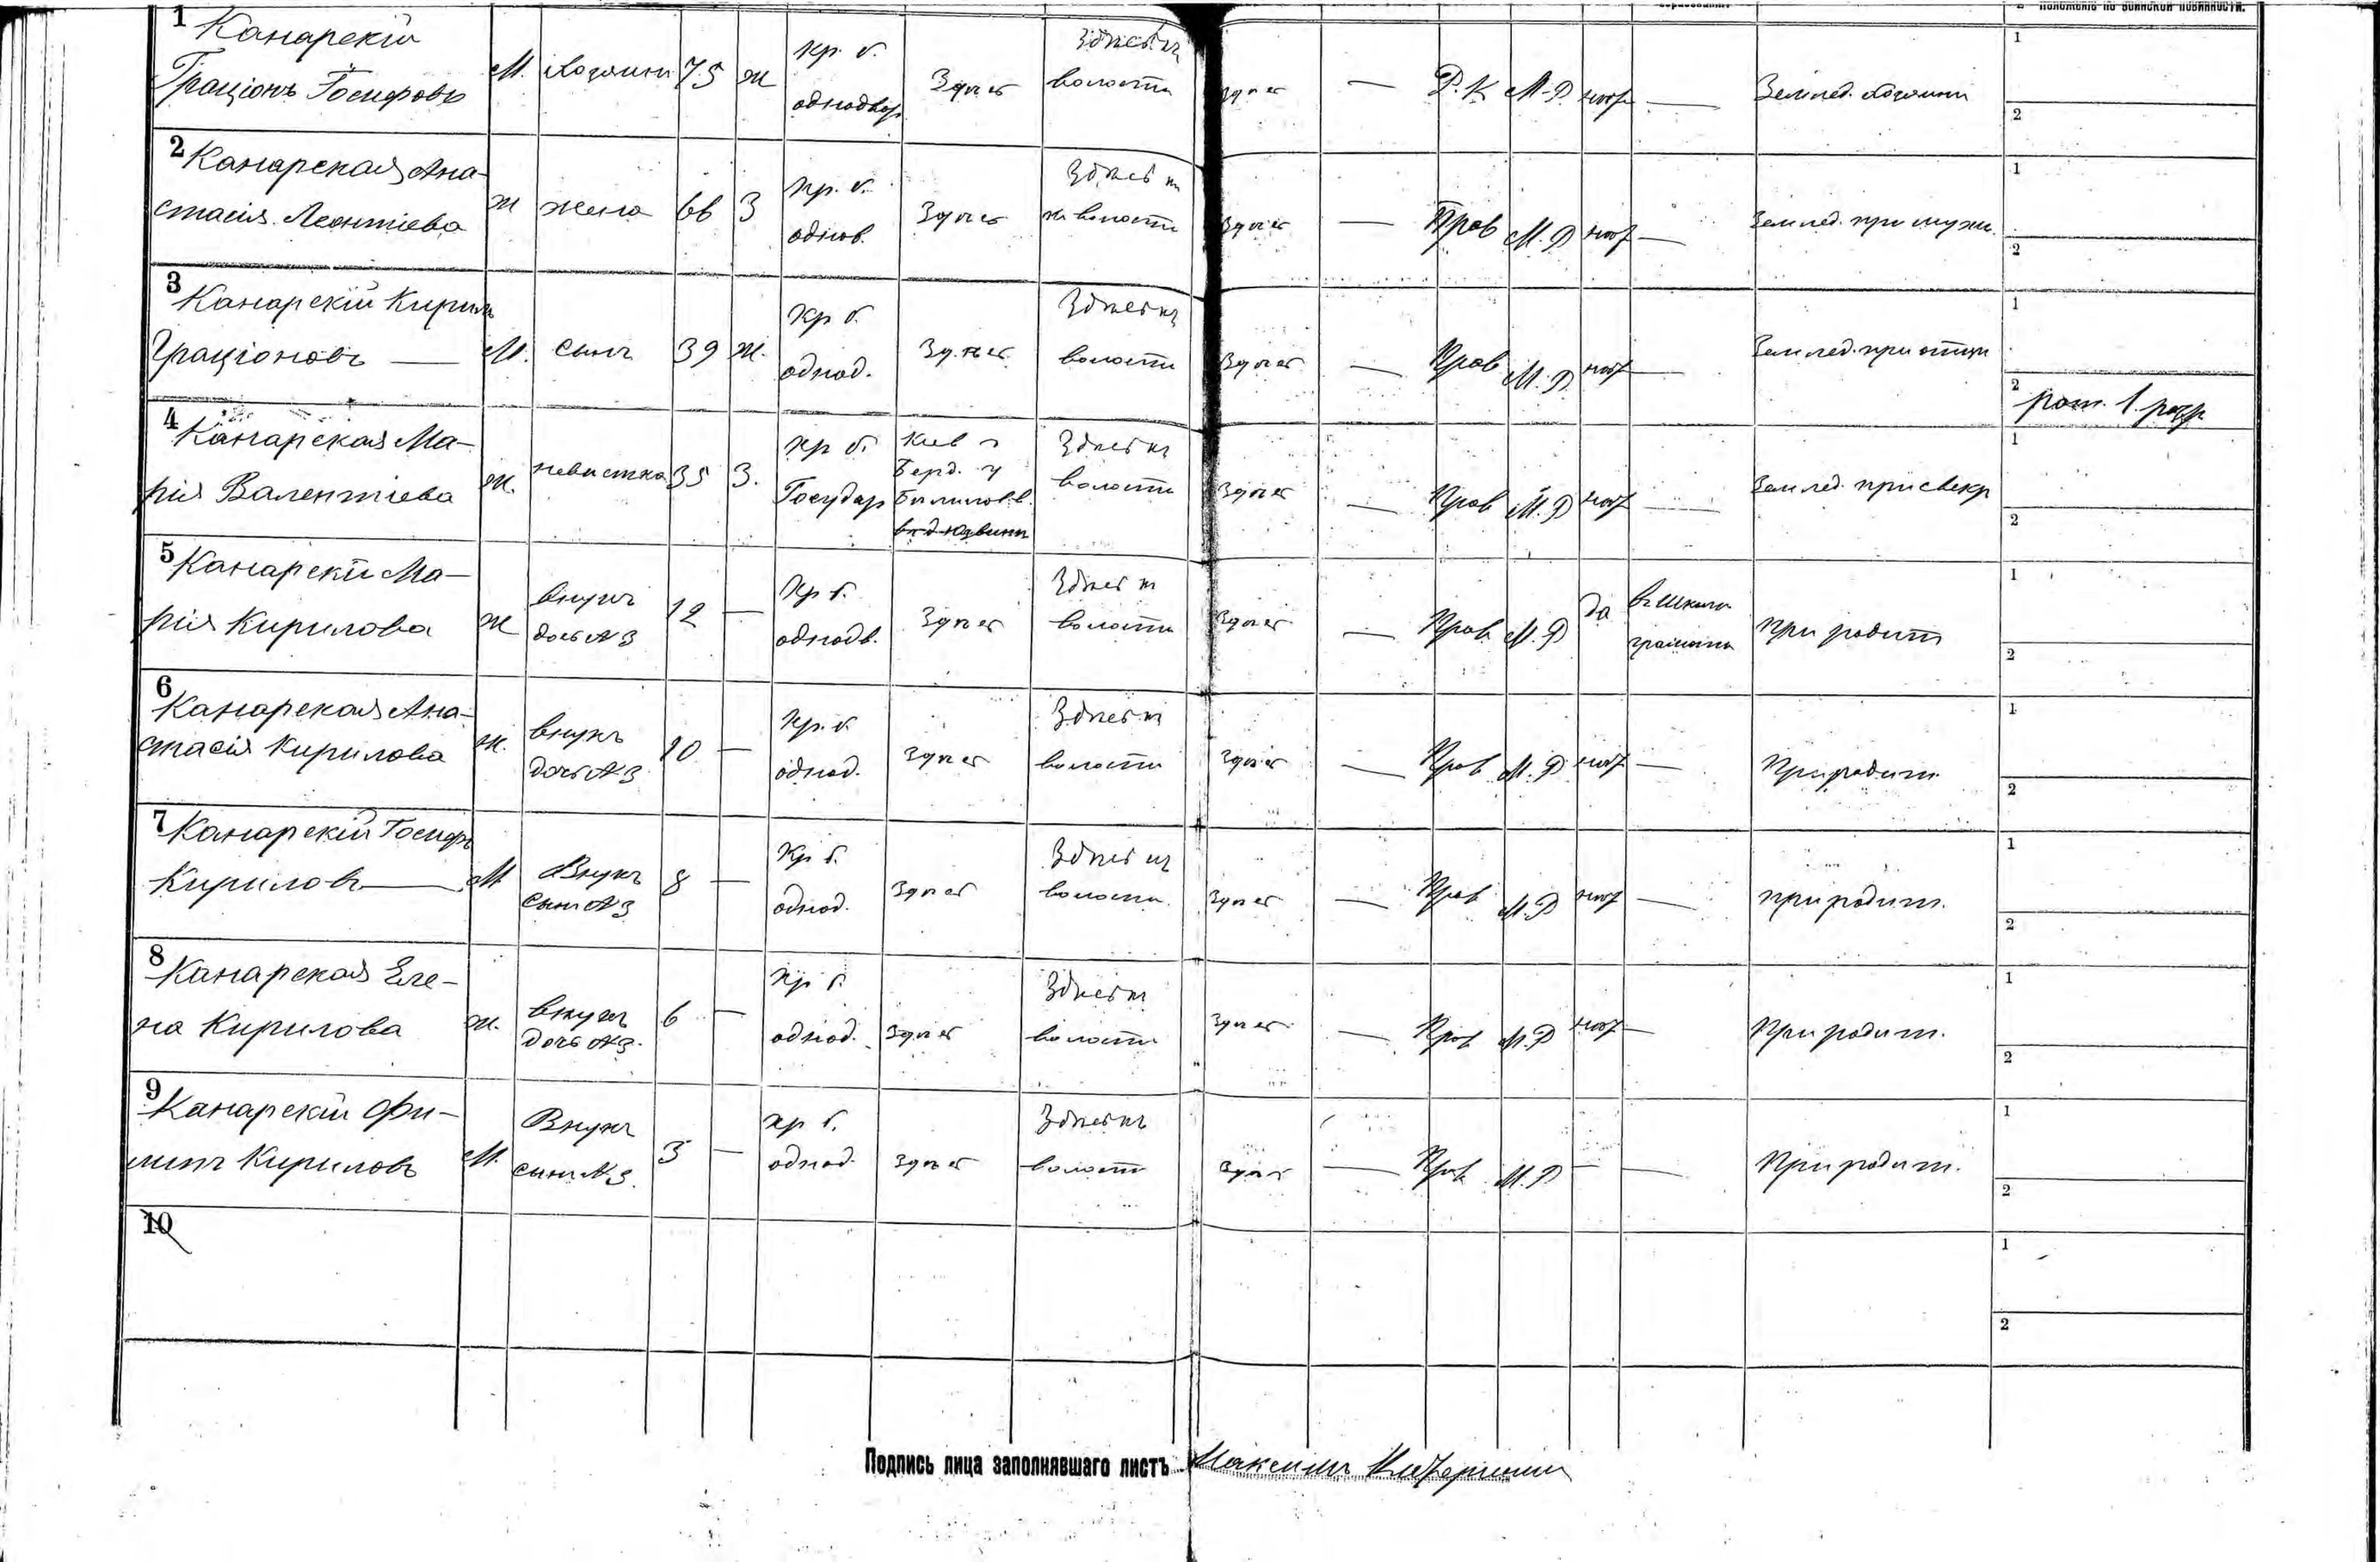 Положеніе по воинской повинности.
1 Канарскій
Граціонъ Іосифовъ
М. Хозяинъ 75 ж
кр. б.
однодвор
Здѣсь
Здѣсь въ
волости
Здѣсь — Р.К М.Р. нѣтъ — Землед. хозяинъ
1
2
2 Канарская Ана-
стасія Леонтіева
ж жена 66 З
кр. б.
однов.
Здѣсь
Здѣсь въ
волости
Здѣсь — Прав М.Р нѣтъ — Землед. при муж.
1
2
3 Канарскій Кирилъ
Граціоновъ —
М. сынъ 39 ж.
кр б.
однод.
Здѣсь
Здѣсь въ
волости
Здѣсь — Прав М.Р нѣтъ — Землед. при отцѣ
1
2
рат. 1. разр
4 Канарская Ма-
рія Валентіева
ж. невистка 35 З.
кр б.
Государ
Кіев г
Берд. у
Здѣсь въ
волости
Здѣсь — Прав М.Р нѣтъ — Землед. при свекр
1
2
5 Канарскій Ма-
рія Кирилова
ж
внучъ
дочь №3
12 —
кр б.
однодв.
Здѣсь
Здѣсь въ
волости
Здѣсь — Прав М.Р да
въ школѣ
грамоты
При родит
1
2
6 Канарская Ана-
стасія Кирилова
ж.
внукъ
дочь №3
10 —
кр. б.
однод.
Здѣсь
Здѣсь въ
волости
Здѣсь — Прав М.Р нѣтъ — При родит.
1
2
7 Канарскій Іосифъ
Кириловъ —
М
Внукъ
сынъ №3
8 —
кр б.
однод.
Здѣсь
Здѣсь въ
волости.
Здѣсь — Прав М.Р нѣтъ — при родит.
1
2
8 Канарская Еле-
на Кирилова
ж.
внучъ
дочь №3.
6 —
кр б.
однод.
Здѣсь
Здѣсь въ
волости
Здѣсь — Прав М.Р нѣтъ — При родит.
1
2
9 Канарскій Фи-
липъ Кириловъ
М.
Внукъ
сынъ №3.
3 —
кр б.
однод.
Здѣсь
Здѣсь въ
волости
Здѣсь — Прав М.Р — — При родит.
1
2
10
1
2
Подпись лица заполнявшаго листъ Максимъ